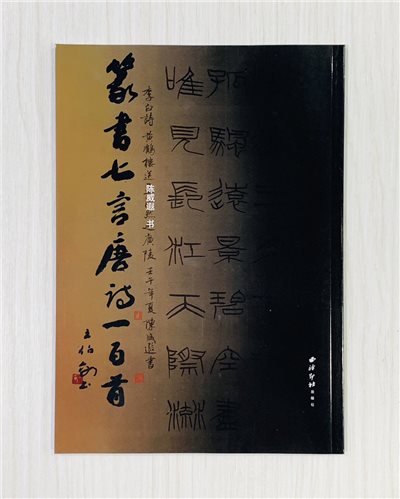 篆書七言唐诗一百首
王伯敏书
李白詩黄鶴樓送
廣陵壬午年夏陳威遐書
陈威遐 书
孤颿遠景碧空盡
唯見長江天際流
西泠印社
出版社